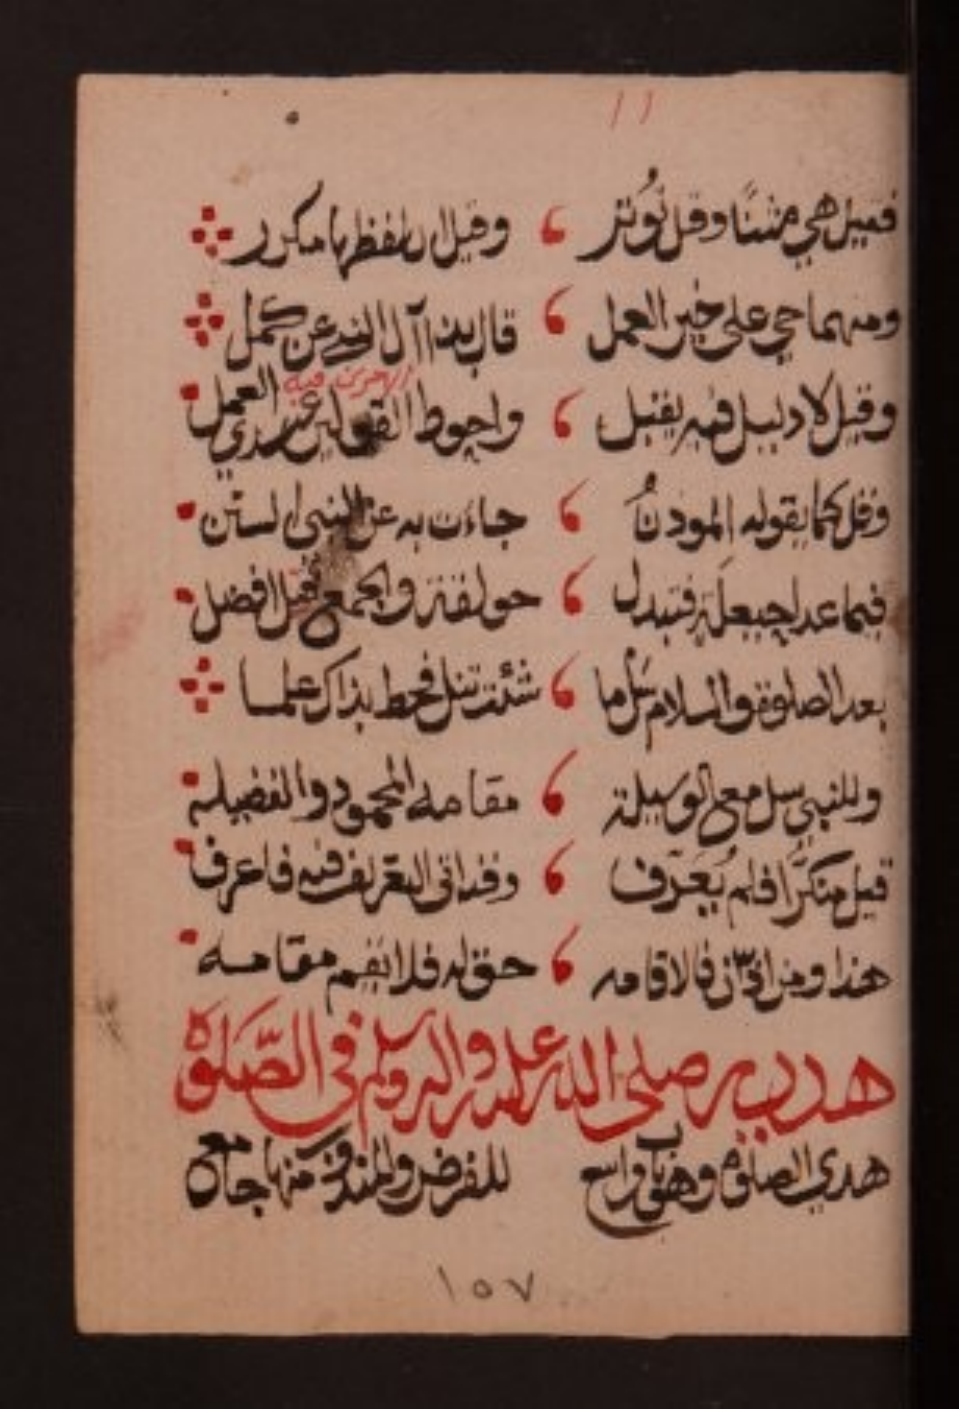 ١١
فقيل هي مثنا وقل توتر وقيل ان لفظها مكرر
ومنهما حي على خير العمل قال بذا آل النبي عن كمل
الاحرى فيه
وقيل لا دليل فيه يقبل واحوط القولين عندي العمل
وقل كما يقوله الموذن جاءت به عن النبي السنن
فيما عدا حيعلة فتبدل حولقة والجمع قيل افضل
بعد الصلوة والسلام سل ما شئت تنل فحط بذاك علما
وللنبي سل مع الوسيلة مقامه المحمود والفضيله
قيل منكرا فلم يعرف وقد اتى التعريف فيه فاعرف
هذا ومن اذن فالاقامه حق له فلا تقم مقامه
هديه صلى الله عليه واله وسلم في الصلوة
هدي الصلوة وهو باب واسع للفرض والمندوب منها جامع
١٥٧